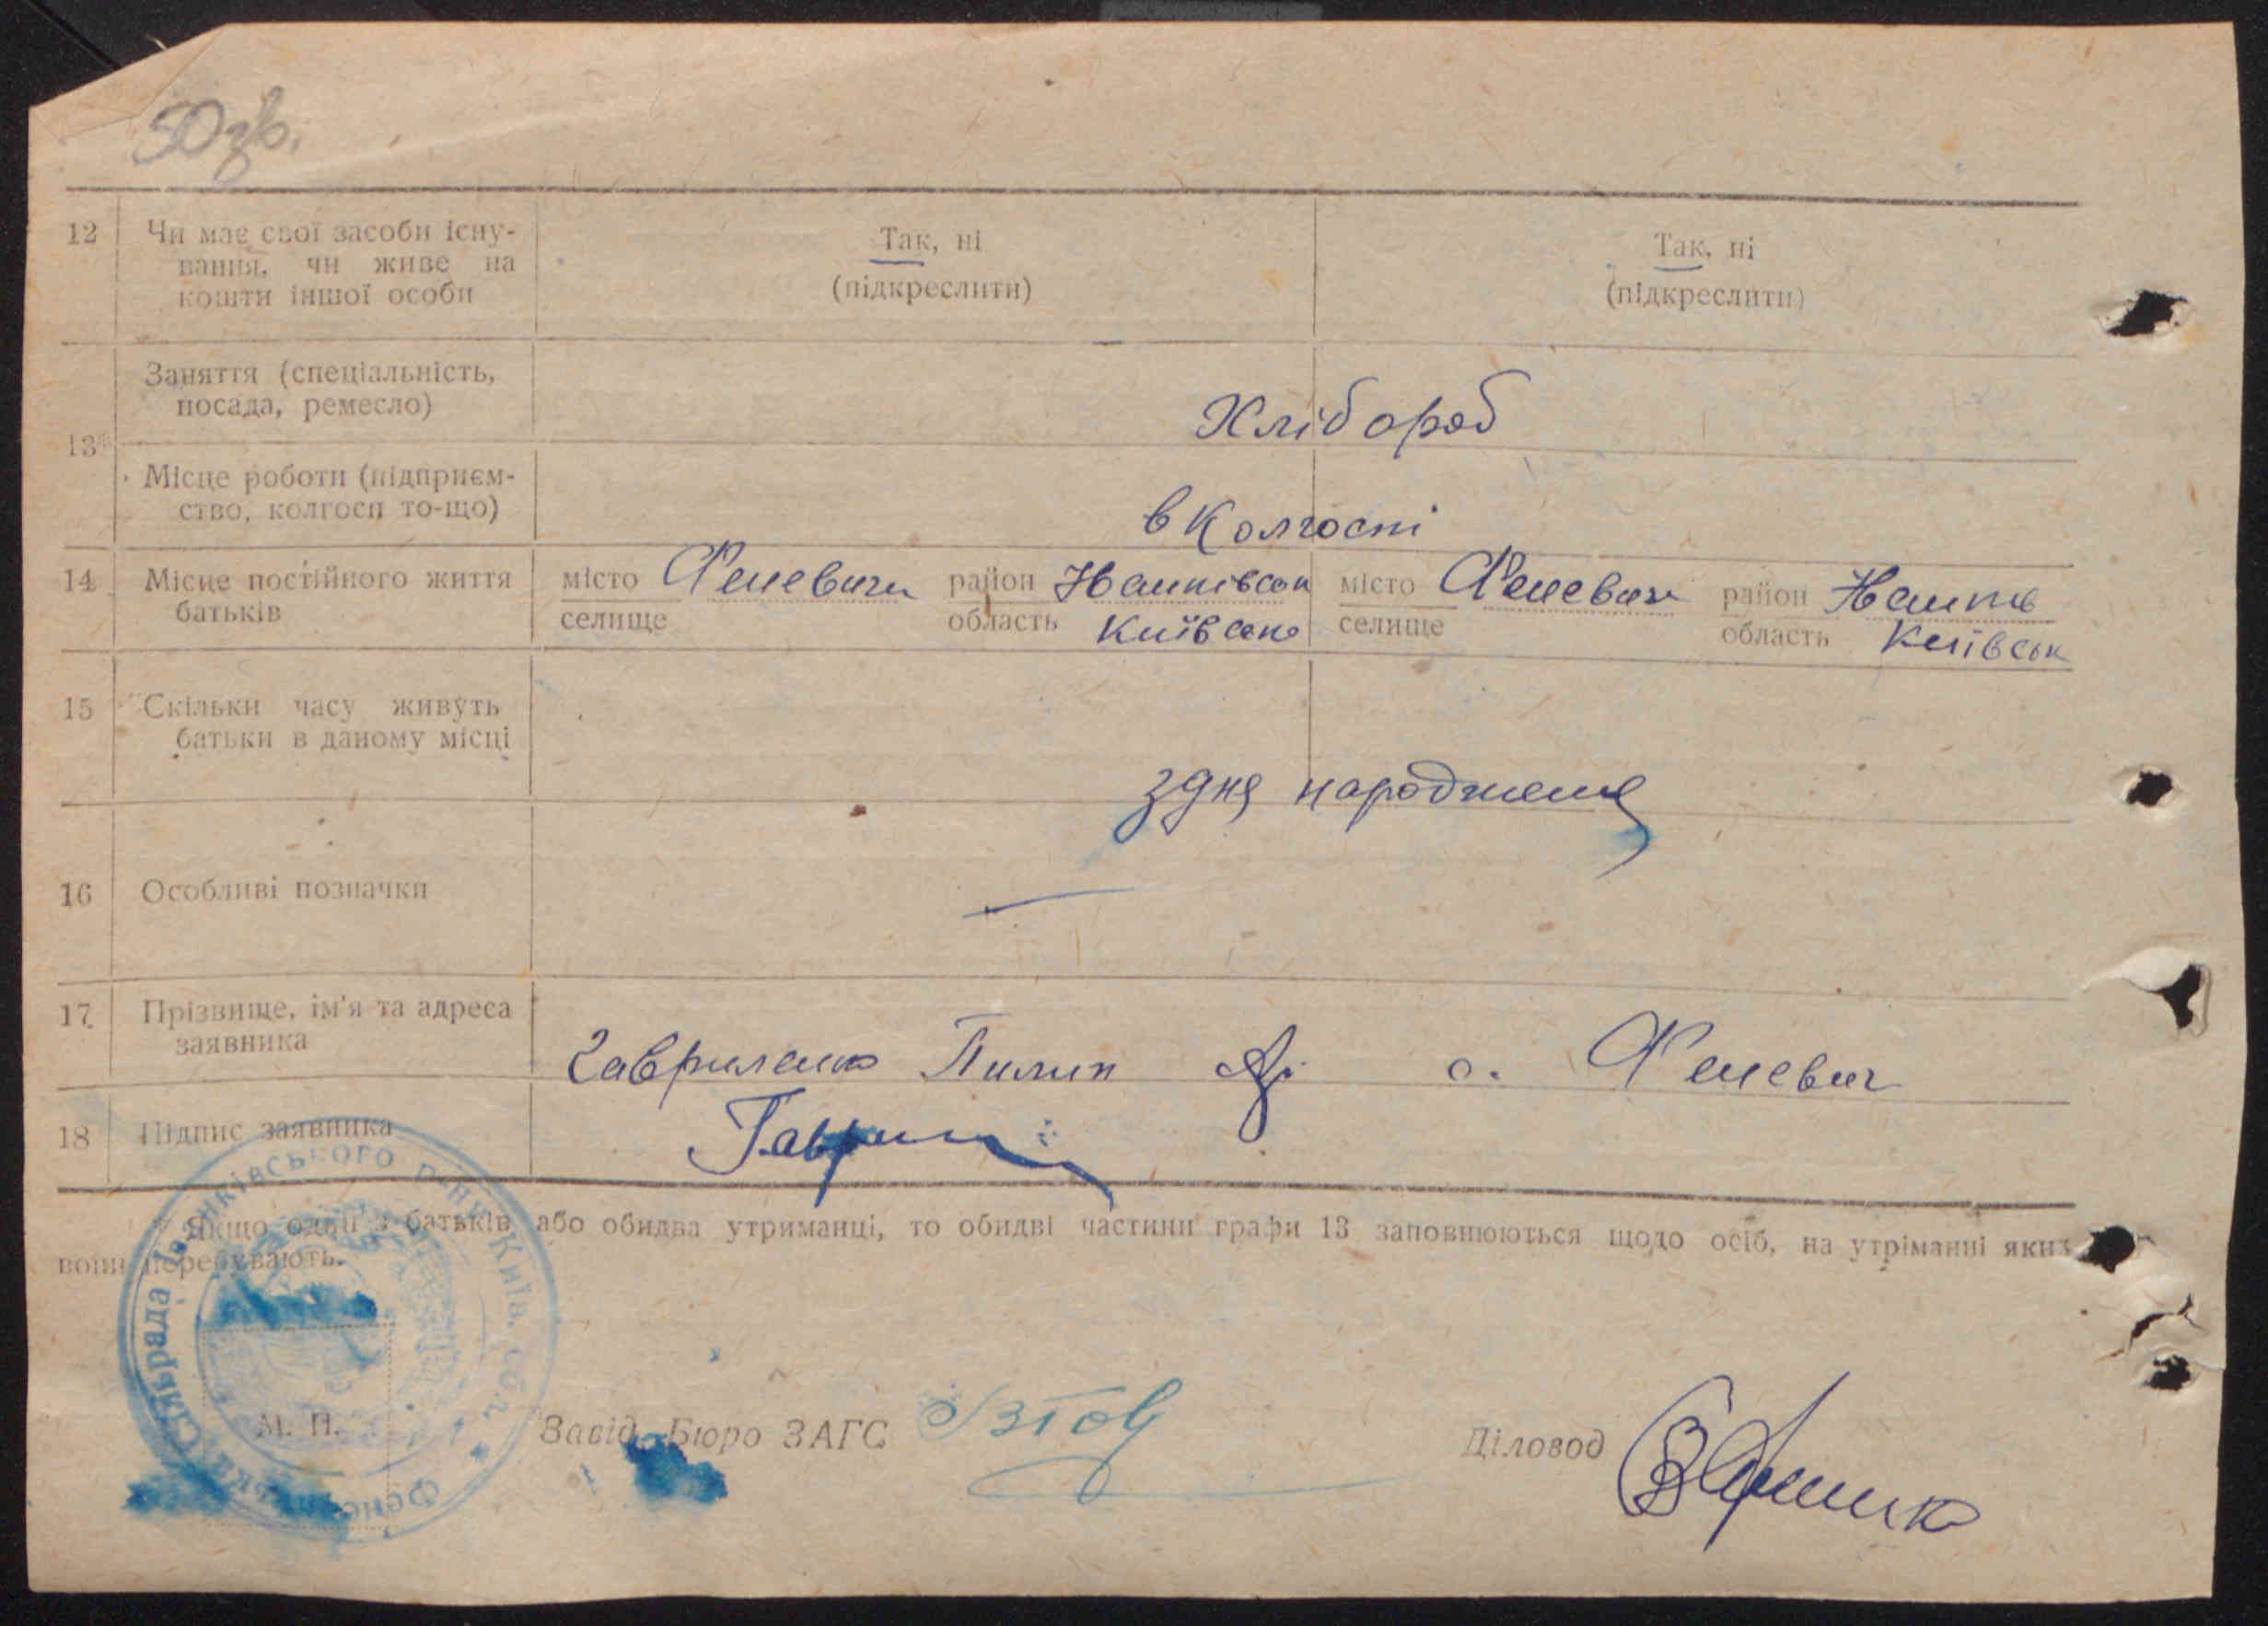 50зв.
12 Чи має свої засоби існу- Так, ні Так, ні
вання, чи живе на (підкреслити) (підкреслити)
кошти іншої особи
Заняття (спеціальність,
посада, ремесло) Хлібороб
13*
Місце роботи (підприєм-
ство, колгосп то-що) в Колгоспі
14 Місце постійного життя місто Феневичи район Іванківськ місто Феневичи район Іванків
батьків селище область Київська селище область Київськ
15 Скільки часу живуть
батьки в даному місці
здня народження
16 Особливі позначки —
17 Прізвище, ім'я та адреса
заявника Гавриленко Пилип с. Феневич
18 Підпис заявника Гаврил
* Якщо один з батьків, або обидва утриманці, то обидві частини графи 13 заповнюються щодо осіб, на утріманні яких
вони перебувають.
Феневицька Сільрада Іванківського р-ну Київ. обл.
М. П. Завід. Бюро ЗАГС Діловод